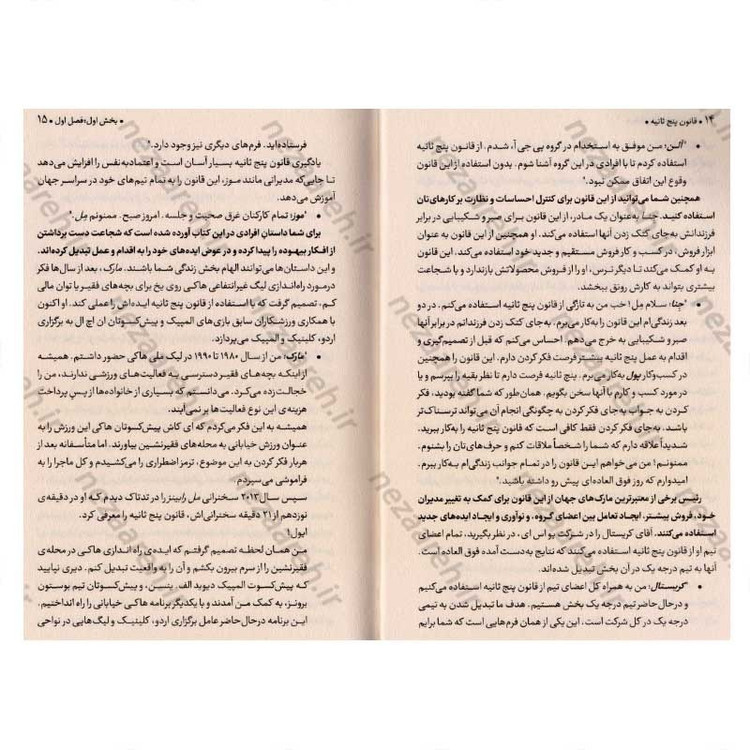 ۱۴ • قانون پنج ثانیه •
• آلن: من موفق به استخدام در گروه پی جی اِ، شدم. از قانون پنج ثانیه
استفاده کردم تا با افرادی در این گروه آشنا شوم. بدون استفاده از این قانون
وقوع این اتفاق ممکن نبود."
همچنین شما می‌توانید از این قانون برای کنترل احساسات و نظارت بر کارهای‌تان
استفاده کنید. جِنا به‌عنوان یک مادر، از این قانون برای صبر و شکیبایی در برابر
فرزندانش به‌جای کتک زدن آنها استفاده می‌کند. او همچنین از این قانون به‌عنوان
ابزار فروش، در کسب و کار فروش مستقیم و جدید خود استفاده می‌کند. این قانون
به او کمک می‌کند تا دیگر ترس، او را از فروش محصولاتش بازندارد و با شجاعت
بیشتری بتواند به کارش رونق ببخشد.
• جِنا: سلام مِل! خب من به تازگی از قانون پنج ثانیه استفاده می‌کنم. در دو
بعد زندگی‌ام این قانون را به‌کار می‌برم. به‌جای کتک زدن فرزندانم در برابر آنها
صبر و شکیبایی به خرج می‌دهم. احساس می‌کنم که قبل از تصمیم‌گیری و
اقدام به عمل پنج ثانیه بیشتر فرصت فکر کردن دارم. این قانون را همچنین
در کسب‌وکار پول به‌کار می‌برم. پنج ثانیه فرصت دارم تا نظر بقیه را بپرسم و یا
در مورد کسب و کارم با آنها سخن بگویم. همان‌طور که شما گفته بودید، فکر
کردن به جواب به‌جای فکر کردن به چگونگی انجام آن می‌تواند ترسناک‌تر
باشد. به‌جای فکر کردن فقط کافی است که قانون پنج ثانیه را به‌کار ببرید.
شدیداً علاقه دارم که شما را شخصاً ملاقات کنم و حرف‌های‌تان را بشنوم.
ممنونم؛ من می‌خواهم این قانون را در تمام جوانب زندگی‌ام به‌کار ببرم.
امیدوارم که روز فوق العاده‌ای پیش رو داشته باشید."
رئیس برخی از معتبرترین مارک‌های جهان از این قانون برای کمک به تغییر مدیران
خود، فروش بیشتر، ایجاد تعامل بین اعضای گروه، و نوآوری و ایجاد ایده‌های جدید
استفاده می‌کنند. آقای کریستال را در شرکت یو اس ای، در نظر بگیرید. تمام اعضای
تیم او از قانون پنج ثانیه استفاده می‌کنند که نتایج به‌دست آمده فوق العاده است.
آنها به تیم درجه یک در آن بخش تبدیل شده‌اند.
• کریستال: من به همراه کل اعضای تیم از قانون پنج ثانیه استفاده می‌کنیم
و درحال حاضر تیم درجه یک بخش هستیم. هدف ما تبدیل شدن به تیمی
درجه یک در کل شرکت است، این یکی از همان فرم‌هایی است که شما برایم
• بخش اول؛ فصل اول • ۱۵
فرستاده‌اید. فرم‌های دیگری نیز وجود دارد."
یادگیری قانون پنج ثانیه بسیار آسان است و اعتمادبه‌نفس را افزایش می‌دهد
تا جایی‌که مدیرانی مانند موز، این قانون را به تمام تیم‌های خود در سراسر جهان
آموزش می‌دهد.
• "موز: تمام کارکنان غرق صحبت و جلسه. امروز صبح. ممنونم مِل."
برای شما داستان افرادی در این کتاب آورده شده است که شجاعت دست برداشتن
از افکار بیهوده را پیدا کرده و در عوض ایده‌های خود را به اقدام و عمل تبدیل کرده‌اند.
و این داستان‌ها می‌توانند الهام بخش زندگی شما باشند. مارک، بعد از سال‌ها فکر
درمورد راه‌اندازی لیگ غیرانتفاعی هاکی روی یخ برای بچه‌های فقیر با توان مالی
کم، تصمیم گرفت که با استفاده از قانون پنج ثانیه ایده‌اش را عملی کند. او اکنون
با همکاری ورزشکاران سابق بازی‌های المپیک و پیش‌کسوتان ان اچ ال به برگزاری
اردو، کلینیک و المپیک می‌پردازد.
• "مارک: من از سال ۱۹۸۰ تا ۱۹۹۰ در لیگ ملی هاکی حضور داشتم. همیشه
از اینکه بچه‌های فقیر دسترسی به فعالیت‌های ورزشی ندارند، من را
خجالت‌زده می‌کرد. می‌دانستم که بسیاری از خانواده‌ها از پس پرداخت
هزینه‌ی این نوع فعالیت‌ها بر نمی‌آیند.
همیشه به این فکر می‌کردم که ای کاش پیش‌کسوتان هاکی این ورزش را به
عنوان ورزش خیابانی به محله‌های فقیرنشین بیاورند. اما متأسفانه بعد از
هربار فکر کردن به این موضوع، ترمز اضطراری را می‌کشیدم و کل ماجرا را به
فراموشی می‌سپردم.
سپس سال ۲۰۱۳ سخنرانی مل رابینز را در تدتاک دیدم که او در دقیقه‌ی
نوزدهم از ۲۱ دقیقه سخنرانی‌اش، قانون پنج ثانیه را معرفی کرد.
ایول!
من همان لحظه تصمیم گرفتم که ایده‌ی راه اندازی هاکی در محله‌ی
فقیرنشین را از سرم بیرون بکشم و آن را به واقعیت تبدیل کنم. دیری نپایید
که پیش‌کسوت المپیک دیوید الف. ینسن، و پیش‌کسوتان تیم بوستون
بروئنز، به کمک من آمدند و با یکدیگر برنامه هاکی خیابانی را راه انداختیم.
این برنامه درحال حاضر عامل برگزاری اردو، کلینیک و لیگ‌هایی در نواحی
nezareh.ir